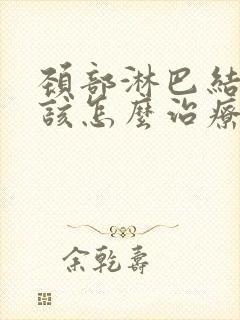 頚部淋巴結
該怎麼治療
余乾壽